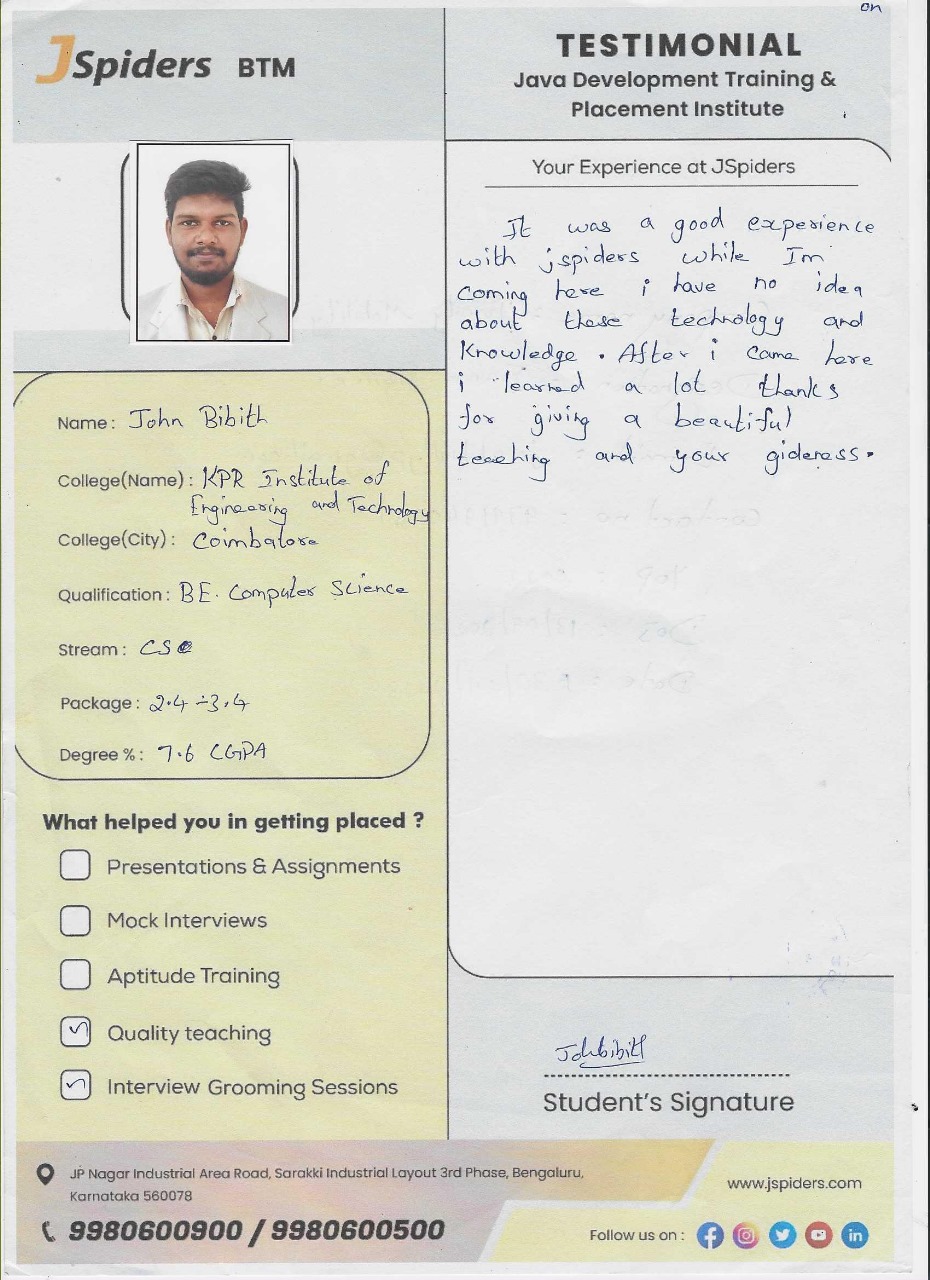 on
JSpiders BTM
TESTIMONIAL
Java Development Training &
Placement Institute
Your Experience at JSpiders
It was a good experience
with jspiders while Im
coming here i have no idea
about these technology and
Knowledge. After i came here
i learned a lot thanks
for giving a beautiful
teaching and your gideness.
Name: John Bibith
College(Name): KPR Institute of
Engineering and Technology
College(City): Coimbatore
Qualification: BE. Computer Science
Stream: CSE
Package: 2.4 ÷3.4
Degree %: 7.6 CGPA
What helped you in getting placed ?
Presentations & Assignments
Mock Interviews
Aptitude Training
Quality teaching
Interview Grooming Sessions
Johnbibith
Student's Signature
JP Nagar Industrial Area Road, Sarakki Industrial Layout 3rd Phase, Bengaluru,
Karnataka 560078
9980600900 / 9980600500
www.jspiders.com
Follow us on :